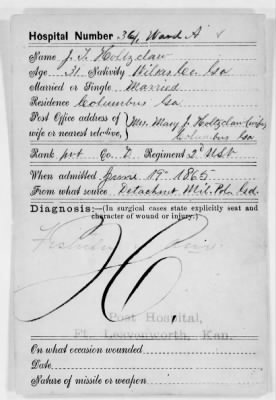 Hospital Number 361 Ward A
Name J. T. Holtzclaw
Age 31 Nativity Wilkes Co. Ga
Married or Single Married
Residence Columbus Ga
Post Office address of
wife or nearest relative, Mrs. Mary J. Holtzclaw (wife)
Columbus Ga
Rank pvt Co. D Regiment 2d U.S.V
When admitted June 19" 1865
From what source Detachmt. Mil. Pris. Gd.
Diagnosis:—(In surgical cases state explicitly seat and
character of wound or injury.)
H
Post Hospital,
Ft. Leavenworth, Kan.
On what occasion wounded
Date
Nature of missile or weapon